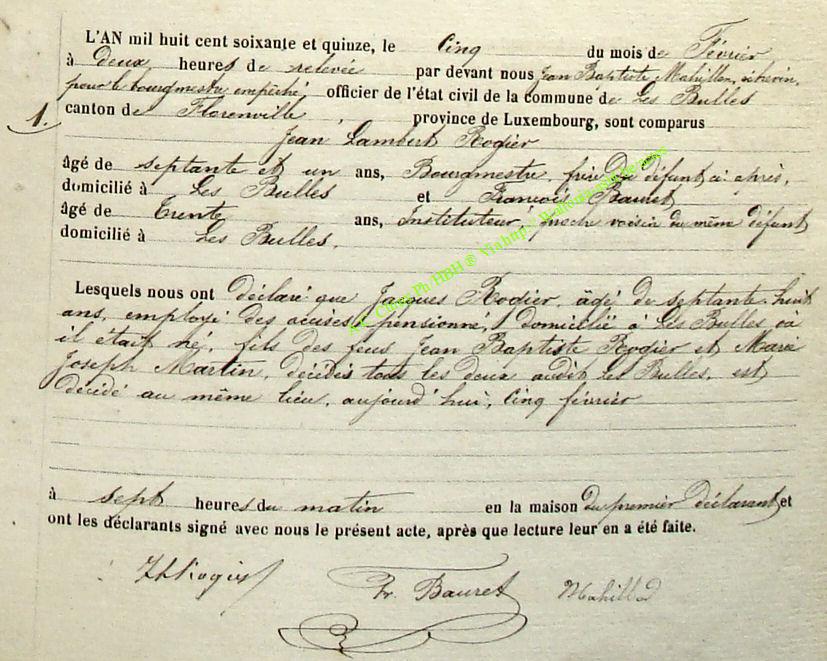 L'AN mil huit cent soixante et quinze, le cinq du mois de Février
à deux heures de relevée par devant nous Jean Baptiste Mahillon, échevin,
pour le bourgmestre empêché, officier de l'état civil de la commune de Les Bulles
1. canton de Florenville, province de Luxembourg, sont comparus
Jean Lambert Rogier
âgé de septante et un ans, Bourgmestre, frère du défunt ci après,
domicilié à Les Bulles et François Bauret
âgé de trente ans, Instituteur, proche voisin du même défunt
domicilié à Les Bulles.
Lesquels nous ont déclaré que Jacques Rogier, âgé de septante-huit
ans, employé des accises pensionné, domicilié à Les Bulles où
il était né, fils des feus Jean Baptiste Rogier et Marie
Joseph Martin, décédés tous les deux audit Les Bulles, est
décédé au même lieu, aujourd'hui, cinq février
à sept heures du matin en la maison du premier déclarant et
ont les déclarants signé avec nous le présent acte, après que lecture leur en a été faite.
Fr. Bauret